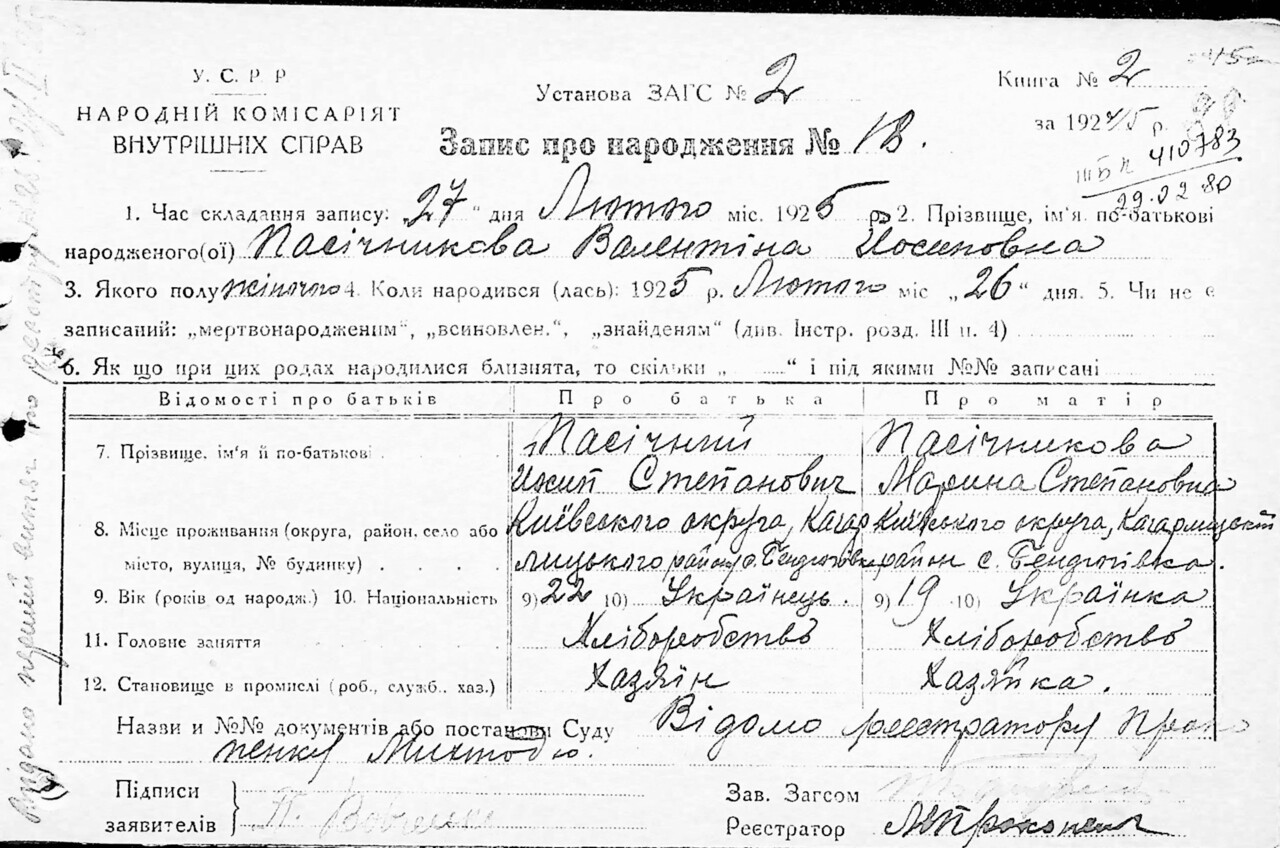 У. С. Р. Р
НАРОДНІЙ КОМІСАРІЯТ
ВНУТРІШНІХ СПРАВ
Установа ЗАГС № 2
Книга № 2
за 1924/5 р.
Запис про народження № 18.
ШБК 410783
29.02 80
1. Час складання запису: „27“ дня Лютого міс. 1925 р. 2. Прізвище, ім'я по-батькові
народженого(ої) Пасічникова Валентіна Иосиповна
3. Якого полу жіночого 4. Коли народився (лась): 1925 р. Лютого міс „26“ дня. 5. Чи не є
записаний: „мертвонародженим“, „всиновлен.“, „знайденям“ (див. Інстр. розд. III п. 4)
6. Як що при цих родах народилися близнята, то скільки „ “ і під якими №№ записані
Відомості про батьків Про батька Про матір
7. Прізвище, ім'я й по-батькові Пасічний Пасічникова
Иосип Степанович Марина Степановна
8. Місце проживання (округа, район, село або Київського округа, Кагар Київського округа, Кагарлицький
місто, вулиця, № будинку) лицького район с. Бендюгівка район с. Бендюгівка.
9. Вік (років од народж.) 10. Національність 9) 22 10) Українець. 9) 19 10) Українка
11. Головне заняття Хліборобство Хліборобство
12. Становище в промислі (роб., служб., хаз.) Хазяїн Хазяйка.
Назви и №№ документів або постанови Суду Відомо реєстратору Проко
пенку
Підписи
заявителів П. Вовченко
Зав. Загсом
Реєстратор Прокопенк